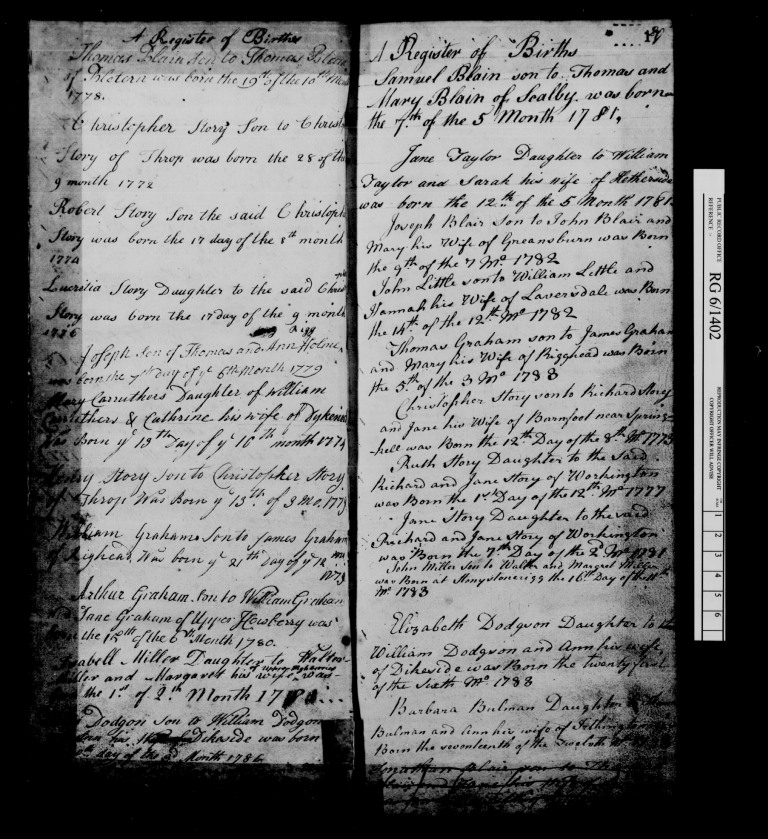 A Register of Births
Thomas Blain Son to Thomas Blain
of was born the 19th of the 10th
1778.
Christopher Story Son to Christ
Story of Throp was born the 28 of the
9 month 1772
Robert Story Son the said Christoph
Story was born the 17 day of the 8th month
1774
Lucritia Story Daughter to the said Chris
Story was born the 17 day of the 9 month
1776
Joseph Son of Thomas and Ann Holme
was born the 7th Day of ye 6th Month 1779
Mary Carruthers Daughter of William
Carruthers & Cathrine his wife of Dykesid
Was Born ye 13th Day of ye 10th month 1774
Henry Story Son to Christopher Story
of Throp Was Born ye 13th of 3 Mo. 1779
William Graham Son to James Graham
of Righead, Was born ye 21th Day of ye 12 mo
1779
Arthur Graham Son to William Graham
and Jane Graham of Upper Hewberry was
born the 12th of the 6th Month 1780.
Isabell Miller Daughter to Walter
Miller and Margaret his wife was
the 1st of 2th Month
Dodgon Son to William Dodgon
his Dikeside was born
day of the Month 1786
A Register of Births
Samuel Blain son to Thomas and
Mary Blain of Scalby was born
the 7th of the 5 Month 1781,
Jane Taylor Daughter to William
Taylor and Sarah his wife of Hetherside
was born the 12th of the 5 Month 1781
Joseph Blair Son to John Blair and
Mary his Wife of Greensburn was Born
the 9th of the 7 Mo. 1782
John Little son to William Little and
Hannah his Wife of Laversdale was Born
the 14th of the 12th Mo 1782
Thomas Graham son to James Graham
and Mary his Wife of Rigghead was Born
the 5th of the 3 Mo 1783
Christopher Story son to Richard Story
and Jane his Wife of Barnfoot near Spring-
-kell was Born the 12th Day of the 8th Mo 1775
Ruth Story Daughter to the Said
Richard and Jane Story of Workington
was Born the 1st Day of the 12th Mo 1777
Jane Story Daughter to the said
Richard and Jane Story of Workington
was Born the 7th Day of the 2d Mo 1781
John Miller Son to Walter and Margret Miller
was Born at Stonystonerigg the 16th Day of the
Mo 1783
Elizabeth Dodgson Daughter to
William Dodgson and Ann his wife
of Dikeside was Born the twenty first
of the Sixth Mo 1783
Barbara Bulman Daughter
Bulman and Ann his wife of
Born the seventeenth of the Twelvth
Jonathan Blair son to
PUBLIC RECORD OFFICE
REFERENCE :-
RG 6/1402
REPRODUCTION MAY INFRINGE COPYRIGHT
COPYRIGHT OFFICER WILL ADVISE
1
2
3
4
5
6